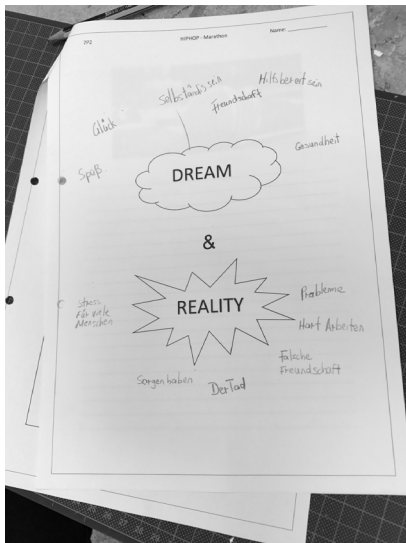 7P2 HIPHOP - Marathon Name:
Selbständigsein
Hilfsbereitsein
Freundschaft
Glück
Gesundheit
Spaß
DREAM
&
REALITY
Stress
Für viele
Menschen
Probleme
Hart Arbeiten
Falsche
Freundschaft
Sorgen haben
Der Tod